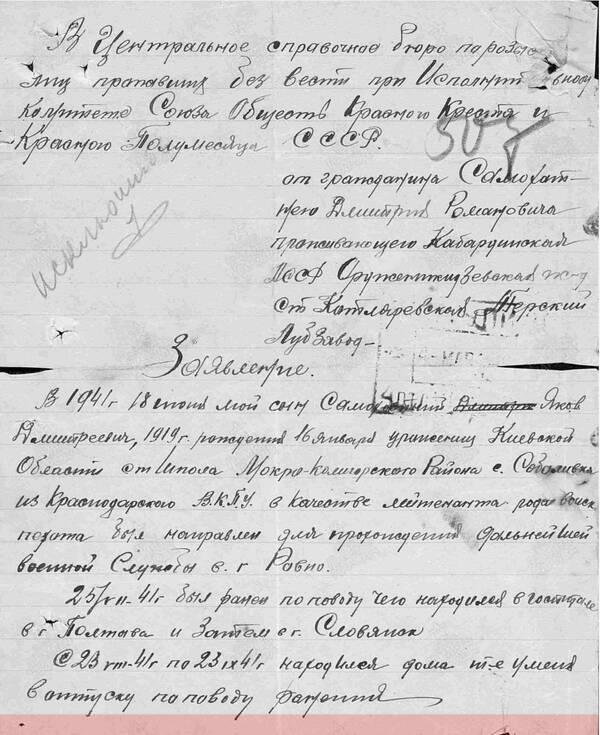 В Центральное справочное бюро по розыс
лиц пропавших без вести при Исполнит
комитете Союза Обществ Красного Креста и
Красного Полумесяца СССР.
от гражданина
Дмитрия Романовича
проживающего Кабардинская
АССР Орджоникидзевская ж-д
ст Котляревская Терский
Лубзавод-
Заявление.
В 1941г 18 июня мой сын Яков
Дмитреевич, 1919г. рождения 16 января уроженец Киевской
Области ст Шпола Мокро-Калигорского Района с.
из Краснодарского В.К.П.У. в качестве лейтенанта рода войск
пехота был направлен для прохождения дальнейшей
военной Службы в. г Равно.
25/VII-41г был ранен по поводу чего находился в госпитале
в г Полтава и Затем в г. Словянск
С 23 VIII-41г по 23 IX 41г находился дома т-е у меня
в отпуску по поводу ранения